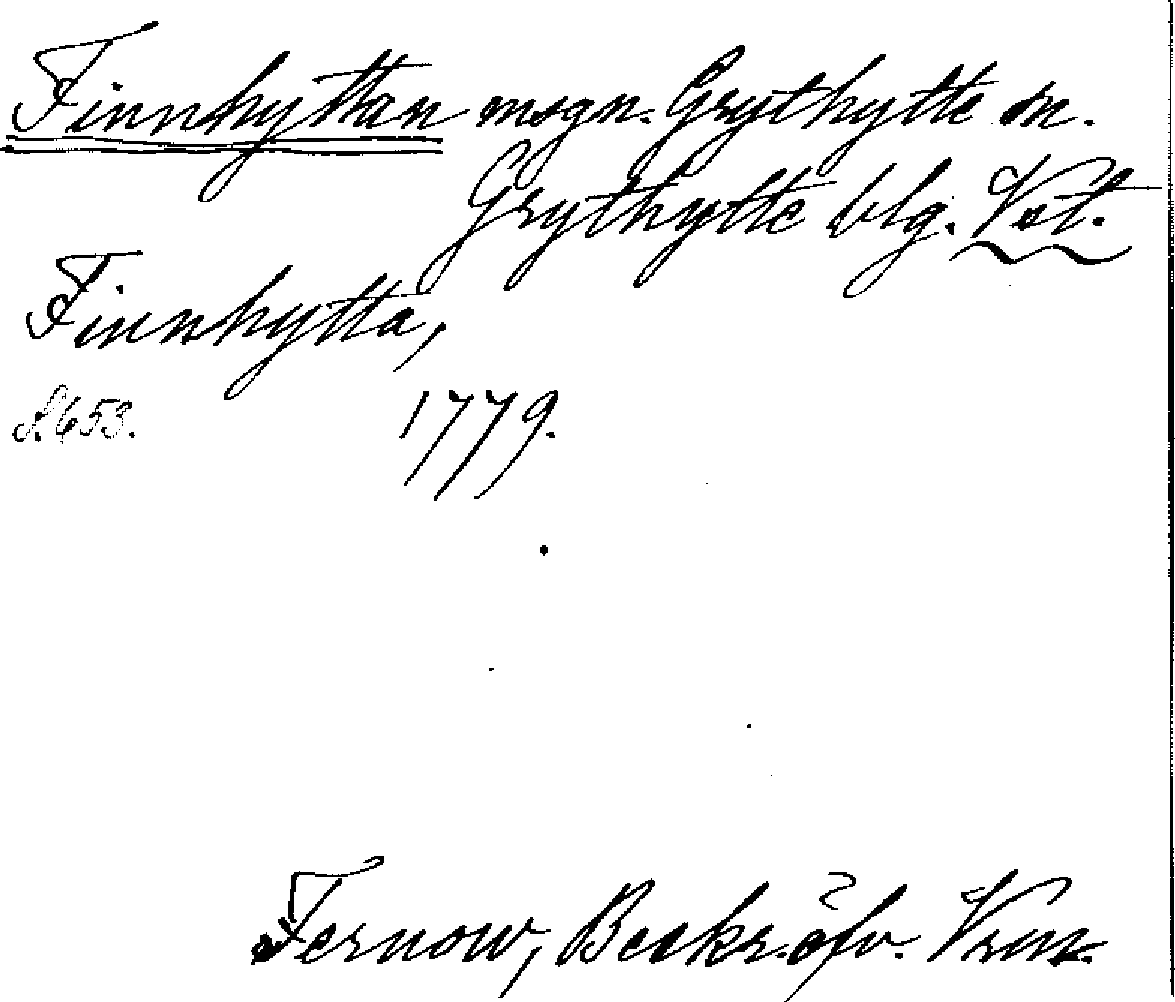 Finnhyttan msgn. Grythytte sn.
Grythytte blg. Vstl.
Finnhytta,
S. 653. 1779.
Fernow, Beskr. öfv. Vrm.